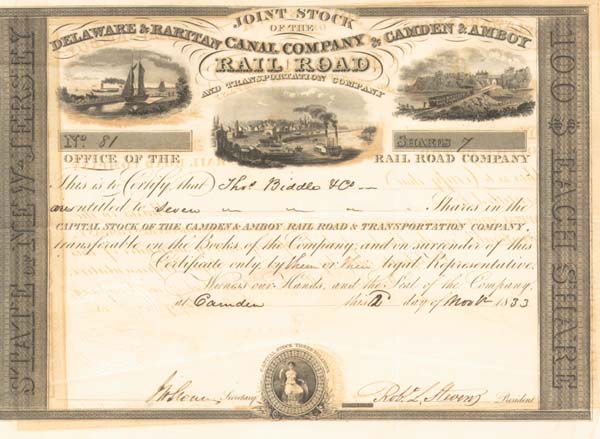 JOINT STOCK
OF THE
DELAWARE & RARITAN CANAL COMPANY & CAMDEN & AMBOY
RAIL ROAD
AND TRANSPORTATION COMPANY
STATE OF NEW-JERSEY
100 $ EACH SHARE
No. 81
SHARES 7
OFFICE OF THE RAIL ROAD COMPANY
This is to Certify that Thos. Biddle & Co.
are entitled to seven Shares in the
CAPITAL STOCK OF THE CAMDEN & AMBOY RAIL ROAD & TRANSPORTATION COMPANY,
transferable on the Books of the Company, and on surrender of this
Certificate only, by them or their legal Representative.
Witness our Hands, and the Seal of the Company,
at Camden this 2 day of Novr 1833
CAPITAL STOCK
Secretary
Robt. L. Stevens President